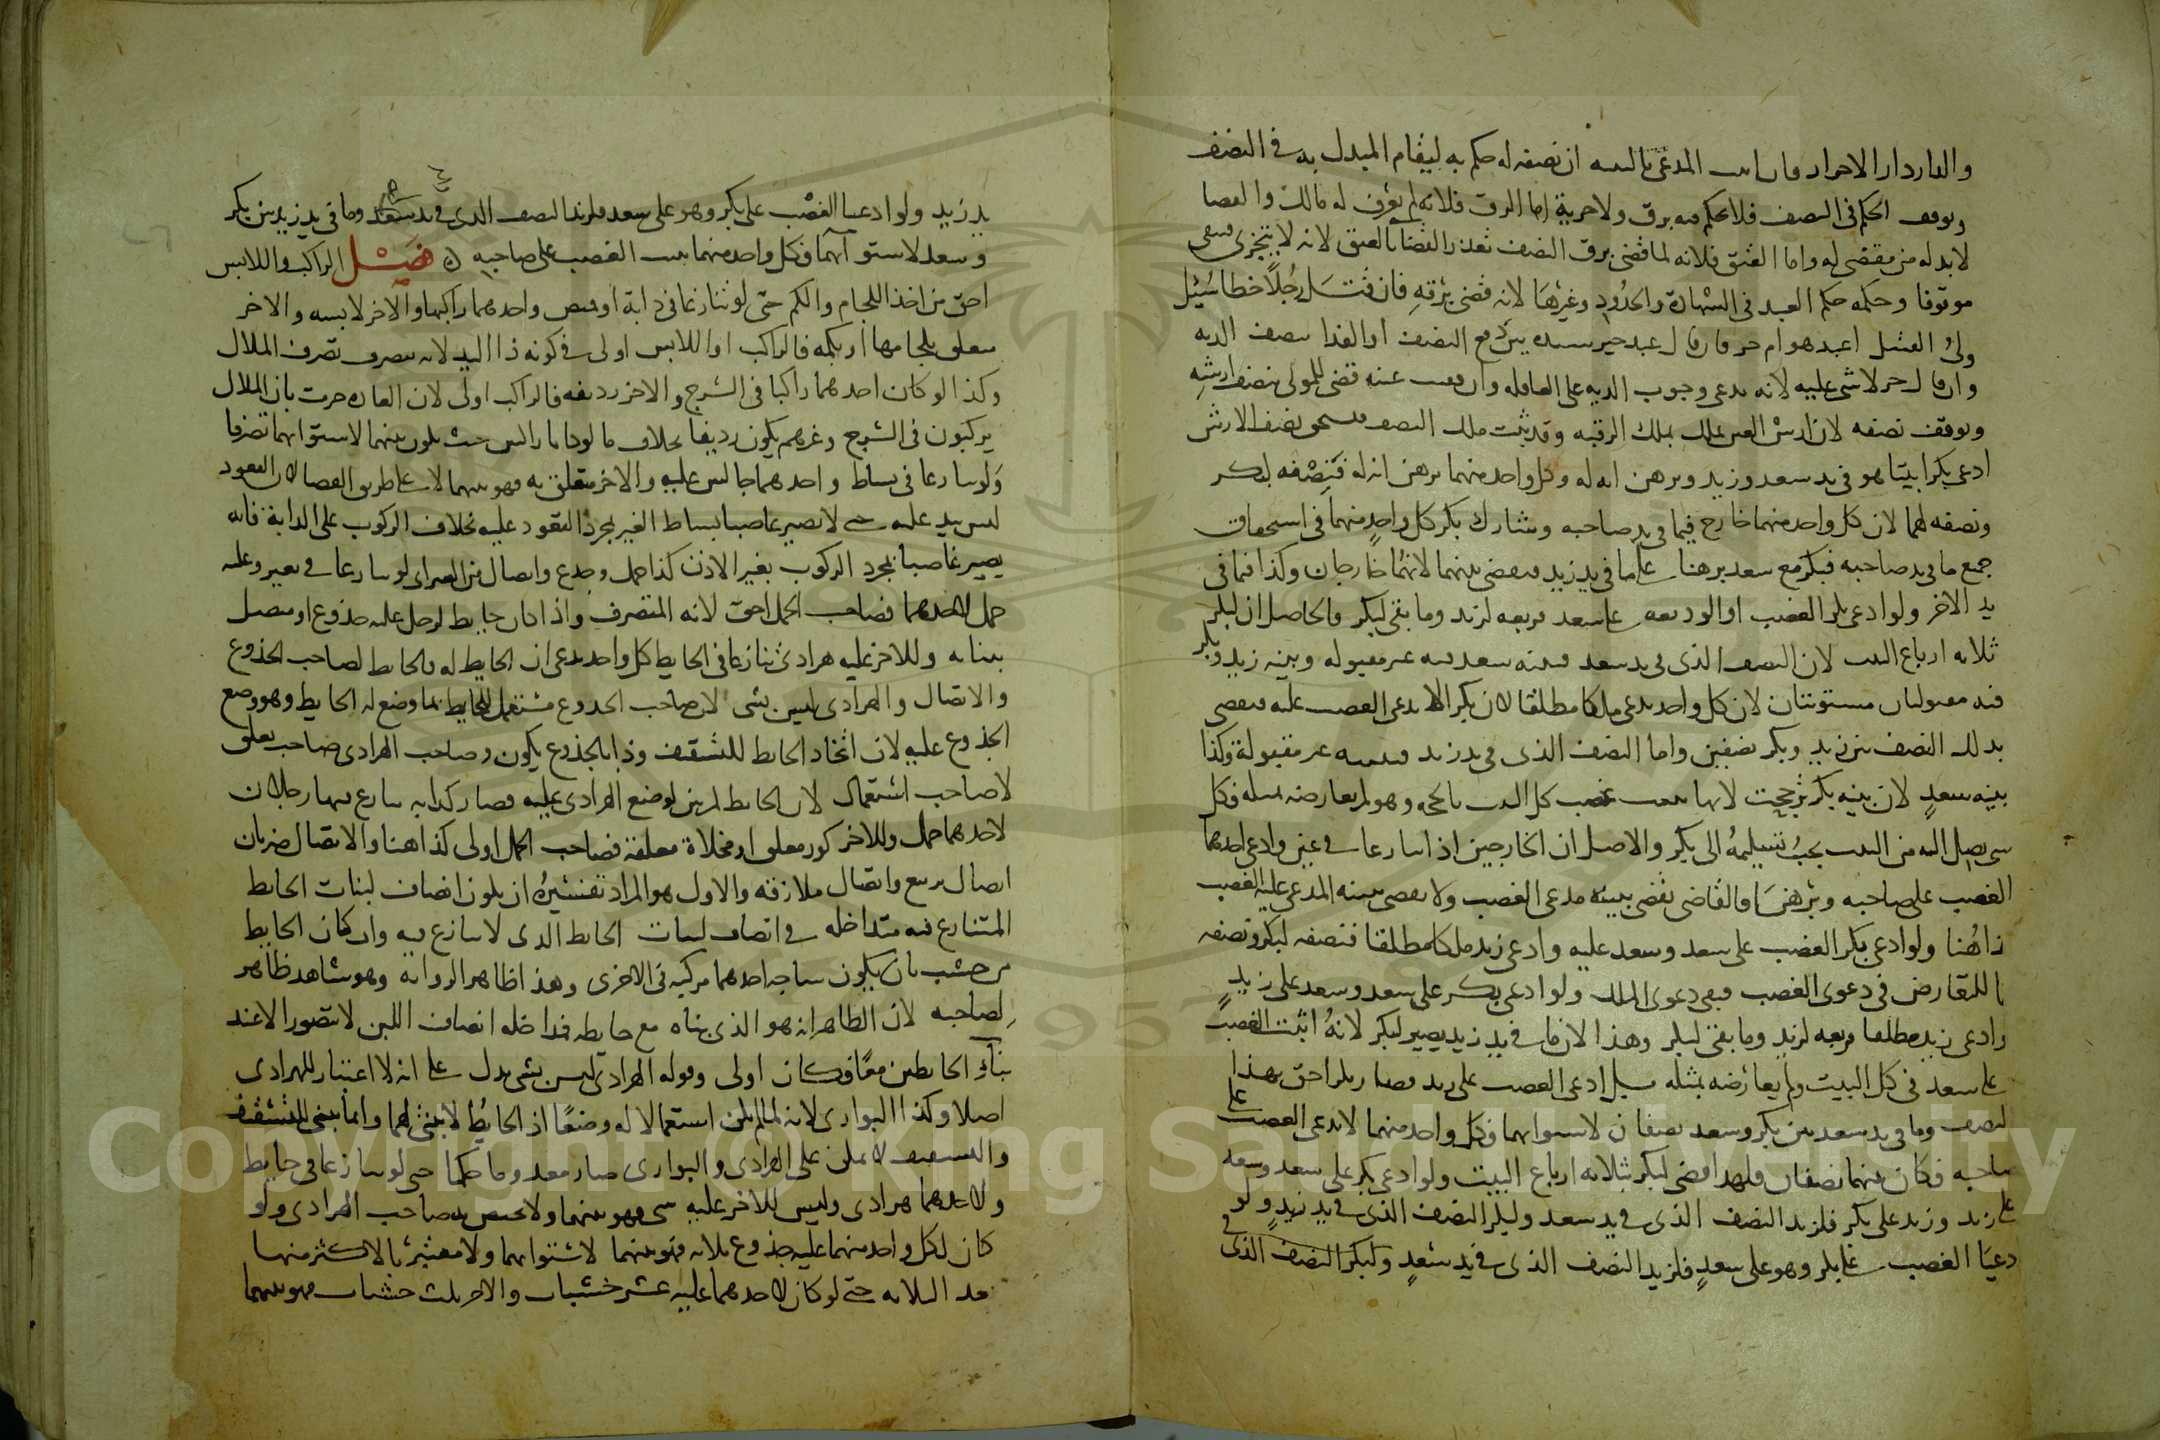 والدار دار الاحرار فان اثبت المدعى بالبينه ان نصفه له حكم به لقيام المبدل به في النصف
وتوقف الحكم في النصف فلا يحكم فيه برق ولا حرية اما الرق فلانه لم يعرف له مالك والقضا
لا بد له من مقضى له واما العتق فلانه لما قضى برق النصف تعذر القضا بالعتق لانه لا يتجزى فبقى
موقوفا وحكمه حكم العبد في الشهادة والحدود وغيرها لانه قضى برقه فان قتل رجلا خطا سئل
ولى القتيل اعبد هو ام حر فان قال عبد خير سيده بين دفع النصف او الفدا بنصف الديه
وان قال حر لا شى عليه لانه يدعى وجوب الديه على العاقله وان فقئت عينه قضى للمولى بنصف ارشه
وتوقف نصفه لان ارش العين يملك بملك الرقبه وقد ثبت ملك النصف فيستحق نصف الارش
ادعى بكر بيتا هو في يد سعد وزيد وبرهن انه له وكل واحد منهما برهن انه له فنصفه لبكر
ونصفه لهما لان كل واحد منهما خارج فيما في يد صاحبه وشارك بكر كل واحد منهما في استحقاق
جميع ما في يد صاحبه فبكر مع سعد برهنا على ما في يد زيد فيقضى بينهما لانهما خارجان وكذا فيما في
يد الاخر ولو ادعى بكر الغصب او الوديعه على سعد فربعه لزيد وما بقى لبكر والحاصل ان لبكر
ثلاثه ارباع البيت لان النصف الذى في يد سعد فبينه سعد فيه غير مقبوله وبينه زيد وبكر
فيه مقبولتان مستويتان لان كل واحد يدعى ملكا مطلقا لان بكرا لا يدعى الغصب عليه فيقضى
بذلك النصف بين زيد وبكر نصفين واما النصف الذى في يد زيد فبينته غير مقبولة وكذا
بينه سعد لان بينه بكر ترجحت لانها تثبت غصب كل البيت بالحجه وهو لم يعارضه بمثله فكل
شى يصل اليه من البيت يجب تسليمه الى بكر والاصل ان الخارجين اذا تنازعا في عين وادعى احدهما
الغصب على صاحبه وبرهنا فالقاضى يقضى ببينه مدعى الغصب ولا يقضى ببينه المدعى عليه الغصب
ذا هنا ولو ادعى بكر الغصب على سعد وسعد عليه وادعى زيد ملكا مطلقا فنصفه لبكر ونصفه
للتعارض في دعوى الغصب فبقى دعوى الملك ولو ادعى بكر على سعد وسعد على زيد
وادعى زيد مطلقا فربعه لزيد وما بقى لبكر وهذا لان ما في يد زيد يصير لبكر لانه اثبت الغصب
على سعد في كل البيت ولم يعارضه بمثله بل ادعى الغصب على زيد فصار بكر احق بهذا
النصف وما في يد سعد بين بكر وسعد نصفان لاستوايهما فكل واحد منهما لا يدعى الغصب على
صاحبه فكان بينهما نصفان فلهذا قضى لبكر بثلاثه ارباع البيت ولو ادعى بكر على سعد وسعد
على زيد وزيد على بكر فلزيد النصف الذى في يد سعد ولبكر النصف الذى في يد زيد ولو
دعيا الغصب على بكر وهو على سعد فلزيد النصف الذى في يد سعد ولبكر النصف الذى في
يد زيد ولو ادعيا الغصب على بكر وهو على سعد فلزيد النصف الذى في يد سعد وما في يد زيد بين بكر
وسعد لاستوائهما فكل واحد منهما يثبت الغصب على صاحبه فصل الراكب واللابس
احق من اخذ اللجام والكم حتى لو تنازعا في دابة او قميص واحدهما راكبها والاخر لابسه والاخر
متعلق بلجامها او بكمه فالراكب او اللابس اولى في كونه ذا اليد لانه يتصرف تصرف الملاك
وكذا لو كان احدهما راكبا في السرج والاخر رديفه فالراكب اولى لان العاده جرت بان الملاك
يركبون في السرج وغيرهم يكون رديفا بخلاف ما لو كانا راكبين حيث يكون بينهما لاستوايهما تصرفا
ولو تنازعا في بساط واحدهما جالس عليه والاخر متعلق به فهو بينهما لا على طريق القضا لان القعود
ليس بيد عليه حتى لا يصير غاصبا بساط الغير بمجرد القعود عليه بخلاف الركوب على الدابة فانه
يصير غاصبا بمجرد الركوب بغير الاذن كذا حمل وجذع واتصال من الغير اى لو تنازعا في بعير وعليه
حمل لاحدهما فصاحب الحمل احق لانه المتصرف واذا كان حايط لرجل عليه جذوع او متصل
ببنائه وللاخر عليه هرادى تنازعا في الحايط كل واحد يدعى ان الحايط له فالحايط لصاحب الجذوع
والاتصال والهرادى ليس بشى لان صاحب الجذوع مستعمل للحايط بما وضع له الحايط وهو وضع
الجذوع عليه لان اتخاذ الحايط للتسقيف وذا بالجذوع يكون وصاحب الهرادى صاحب تعلق
لا صاحب استعمال لان الحايط لم يبن لوضع الهرادى عليه فصار كدابه تنازع فيها رجلان
لاحدهما حمل وللاخر كوز معلق او مخلاة معلقة فصاحب الحمل اولى كذا هنا والاتصال ضربان
اتصال تربيع واتصال ملازقه والاول هو المراد تفسيره ان يكون انصاف لبنات الحايط
المتنازع فيه متداخله في انصاف لبنات الحايط الذى لا تنازع فيه وان كان الحايط
من خشب بان يكون ساجه احدهما مركبه في الاخرى وهذا ظاهر الروايه وهو شاهد ظاهر
لصاحبه لان الظاهر انه هو الذى بناه مع حايطه فمداخله انصاف اللبن لا يتصور الا عند
بناء الحايطين معا فكان اولى وقوله الهرادى ليس بشى يدل على انه لا اعتبار للهرادى
اصلا وكذا البوارى لانه لم يكن استعمالا له وضعا اذ الحايط لا يبنى لهما وانما يبنى للتسقيف
والتسقيف لا يمكن على الهرادى والبوارى حتى لو تنازعا في حايط
ولاحدهما هرادى وليس للاخر عليه شى فهو بينهما ولا يختص به صاحب الهرادى ولو
كان لكل واحد منهما عليه جذوع ثلاثه فهو بينهما لاستوايهما ولا معتبر بالاكثر منها
بعد الثلاثه حتى لو كان لاحدهما عليه عشر خشبات والاخر ثلث خشبات فهو بينهما